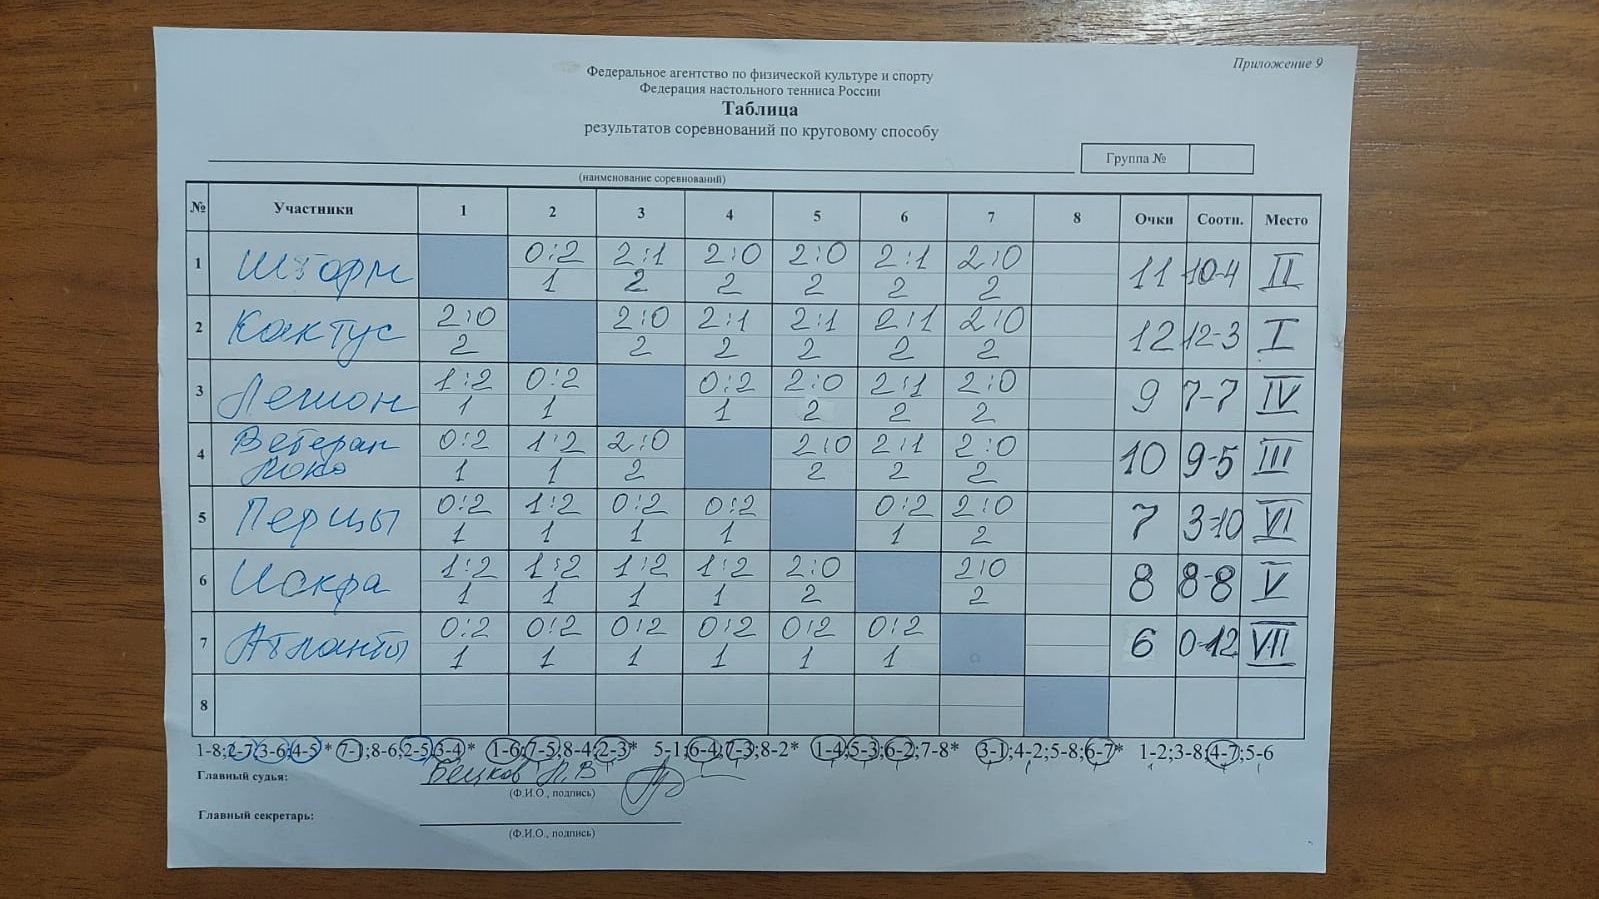 Приложение 9
Федеральное агентство по физической культуре и спорту
Федерация настольного тенниса России
Таблица
результатов соревнований по круговому способу
Группа №
(наименование соревнований)
№ Участники 1 2 3 4 5 6 7 8 Очки Соотн. Место
1 Шторм 0:2 2:1 2:0 2:0 2:1 2:0 11 10-4 II
1 2 2 2 2 2
2 Кактус 2:0 2:0 2:1 2:1 2:1 2:0 12 12-3 I
2 2 2 2 2 2
3 Легион 1:2 0:2 0:2 2:0 2:1 2:0 9 7-7 IV
1 1 1 2 2 2
4 Ветеран 0:2 1:2 2:0 2:0 2:1 2:0 10 9-5 III
Локо 1 1 2 2 2 2
5 Перцы 0:2 1:2 0:2 0:2 0:2 2:0 7 3-10 VI
1 1 1 1 1 2
6 Искра 1:2 1:2 1:2 1:2 2:0 2:0 8 8-8 V
1 1 1 1 2 2
7 Атланты 0:2 0:2 0:2 0:2 0:2 0:2 6 0-12 VII
1 1 1 1 1 1
8
1-8;2-7;3-6;4-5 * 7-1;8-6;2-5;3-4* 1-6;7-5;8-4;2-3* 5-1;6-4;7-3;8-2* 1-4;5-3;6-2;7-8* 3-1;4-2;5-8;6-7* 1-2;3-8;4-7;5-6
Главный судья:
(Ф.И.О., подпись)
Главный секретарь:
(Ф.И.О., подпись)